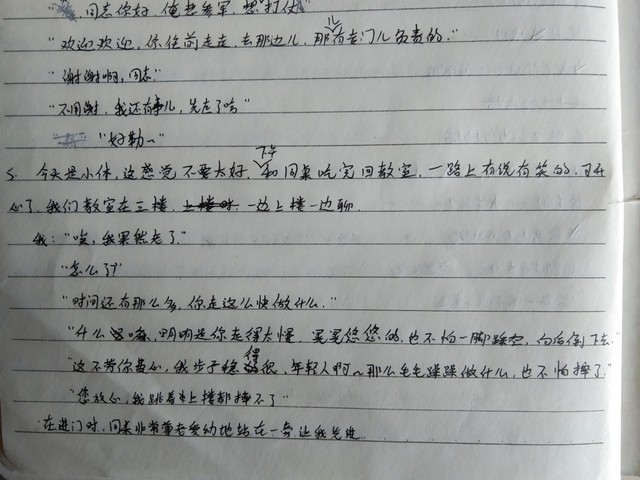 "同志你好,俺想参军,想打仗"
"欢迎欢迎,你往前走走,去那边儿,那儿有专门儿负责的."
"谢谢啊,同志."
"不用谢,我还有事儿,先走了哈"
"好勒~"
5. 今天是小休,这感觉不要太好,下午和同桌吃完回教室,一路上有说有笑的,可开
心了,我们教室在三楼,一边上楼一边聊.
我:"唉,我果然老了."
"怎么了?"
"时间还有那么多,你走这么快做什么."
"什么嘛,明明是你走得太慢,晃晃悠悠的,也不怕一脚踩空,向后倒下去."
"这不劳你费心,我步子稳得很,年轻人啊~那么毛毛躁躁做什么,也不怕摔了."
"您放心,我跳着上楼都摔不了"
在进门时,同桌非常尊老爱幼地站在一旁让我先进